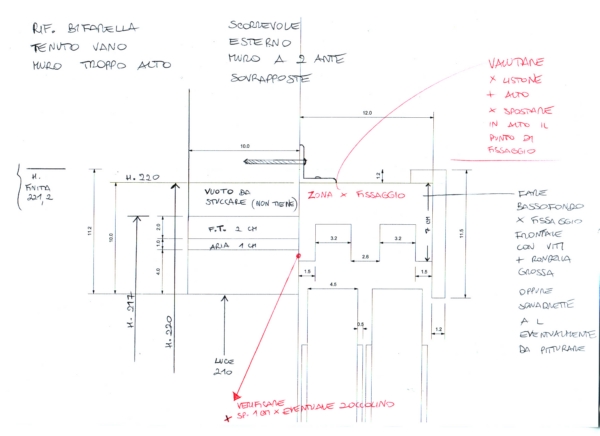 RIF. BIFANELLA
TENUTO VANO
MURO TROPPO ALTO
SCORREVOLE
ESTERNO
MURO A 2 ANTE
SOVRAPPOSTE
VALUTARE
x LISTONE
+ ALTO
x SPOSTARE
IN ALTO IL
PUNTO DI
FISSAGGIO
12.0
10.0
H.
FINITA
221,2
H. 220
1.2
VUOTO DA
STUCCARE (NON TIENE)
ZONA x FISSAGGIO
FARE
BASSOFONDO
x FISSAGGIO
FRONTALE
CON VITI
+ RONDELLA
GROSSA
OPPURE
SQUADRETTE
A L
EVENTUALMENTE
DA PITTURARE
11.2
10.0
2.0
F.T. 2 CM
1.0
ARIA 1 CM
4.0
3.2
3.2
7 CM
11.5
1.5
2.6
1.5
4.0
0.5
1.2
H. 217
H. 220
LUCE
210
VERIFICARE
+ SP. 1 CM x EVENTUALE ZOCCOLINO